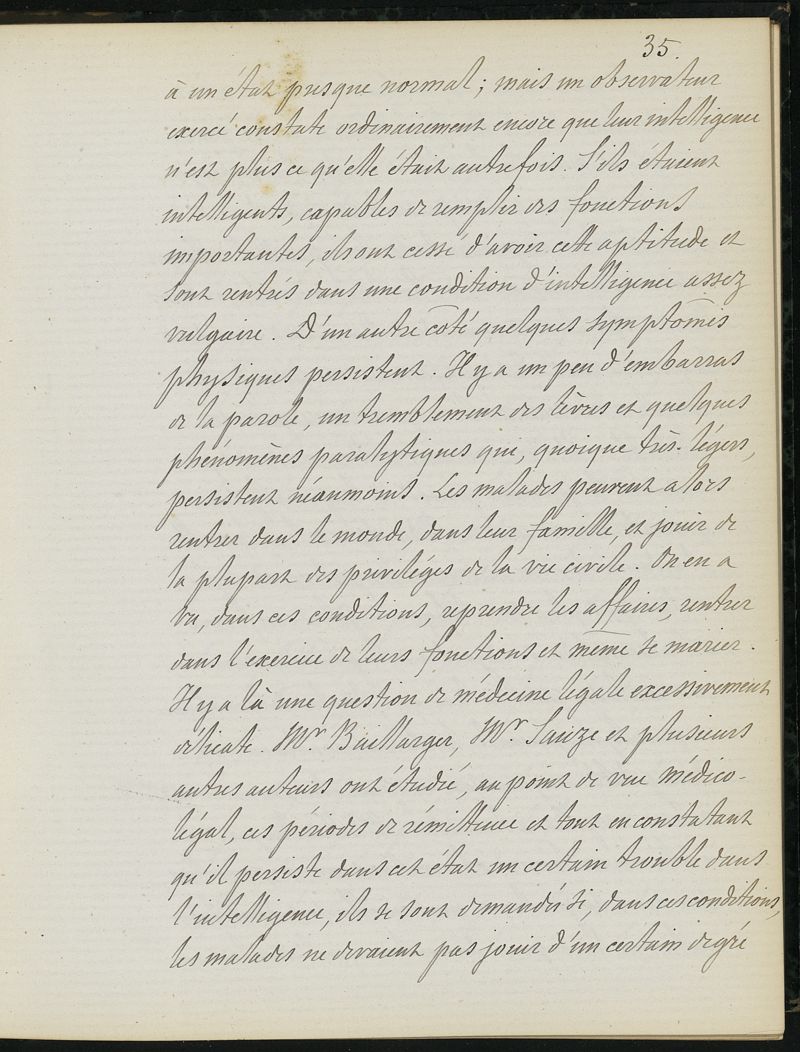 35.
à un état presque normal ; mais un observateur
exercé constate ordinairement encore que leur intelligence
n'est plus ce qu'elle était autrefois. S'ils étaient
intelligents, capables de remplir des fonctions
importantes, ils ont cessé d'avoir cette aptitude et
sont rentrés dans une condition d'intelligence assez
vulgaire. D'un autre côté quelques symptômes
physiques persistent. Il y a un peu d'embarras
de la parole, un tremblement des lèvres et quelques
phénomènes paralytiques qui, quoique très-légers,
persistent néanmoins. Les malades peuvent alors
rentrer dans le monde, dans leur famille, et jouir de
la plupart des priviléges de la vie civile. On en a
vu, dans ces conditions, reprendre les affaires, rentrer
dans l'exercice de leurs fonctions et même se marier.
Il y a là une question de médecine légale excessivement
délicate. Mr Baillarger, Mr Sauze et plusieurs
autres auteurs ont étudié, au point de vue médico-
légal, ces périodes de rémittence et tout en constatant
qu'il persiste dans cet état un certain trouble dans
l'intelligence, ils se sont demandés si, dans ces conditions,
les malades ne devaient pas jouir d'un certain degré